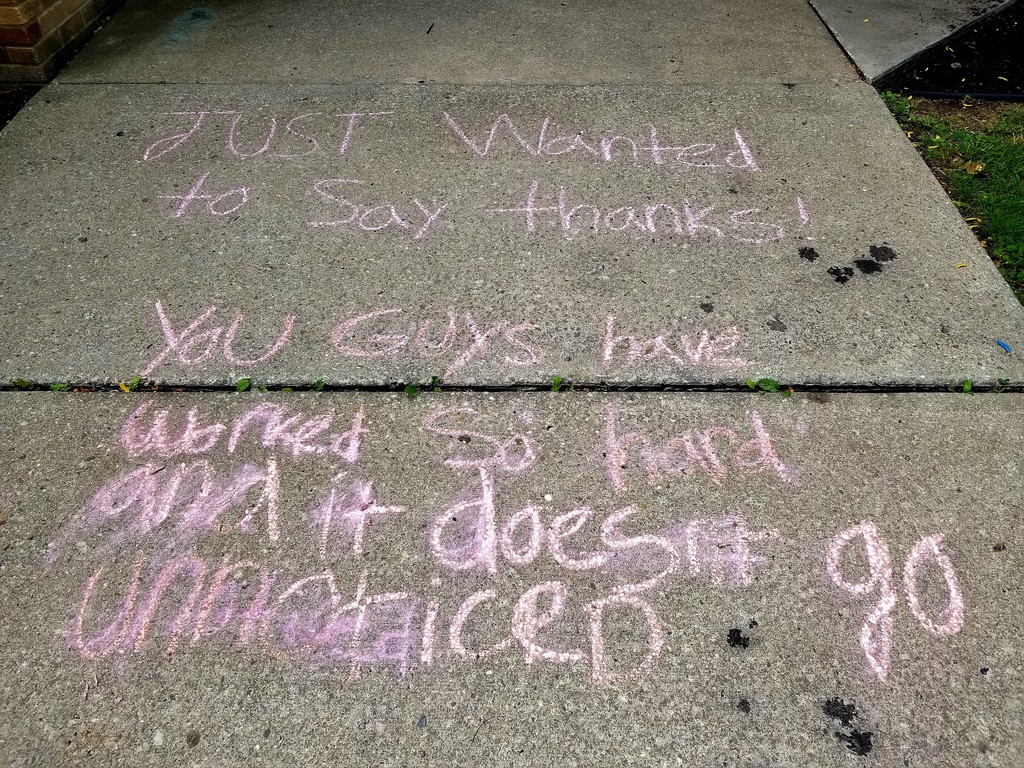 JUST Wanted
to Say thanks!
You Guys have
worked So hard
and it doesn't go
unnoticeD